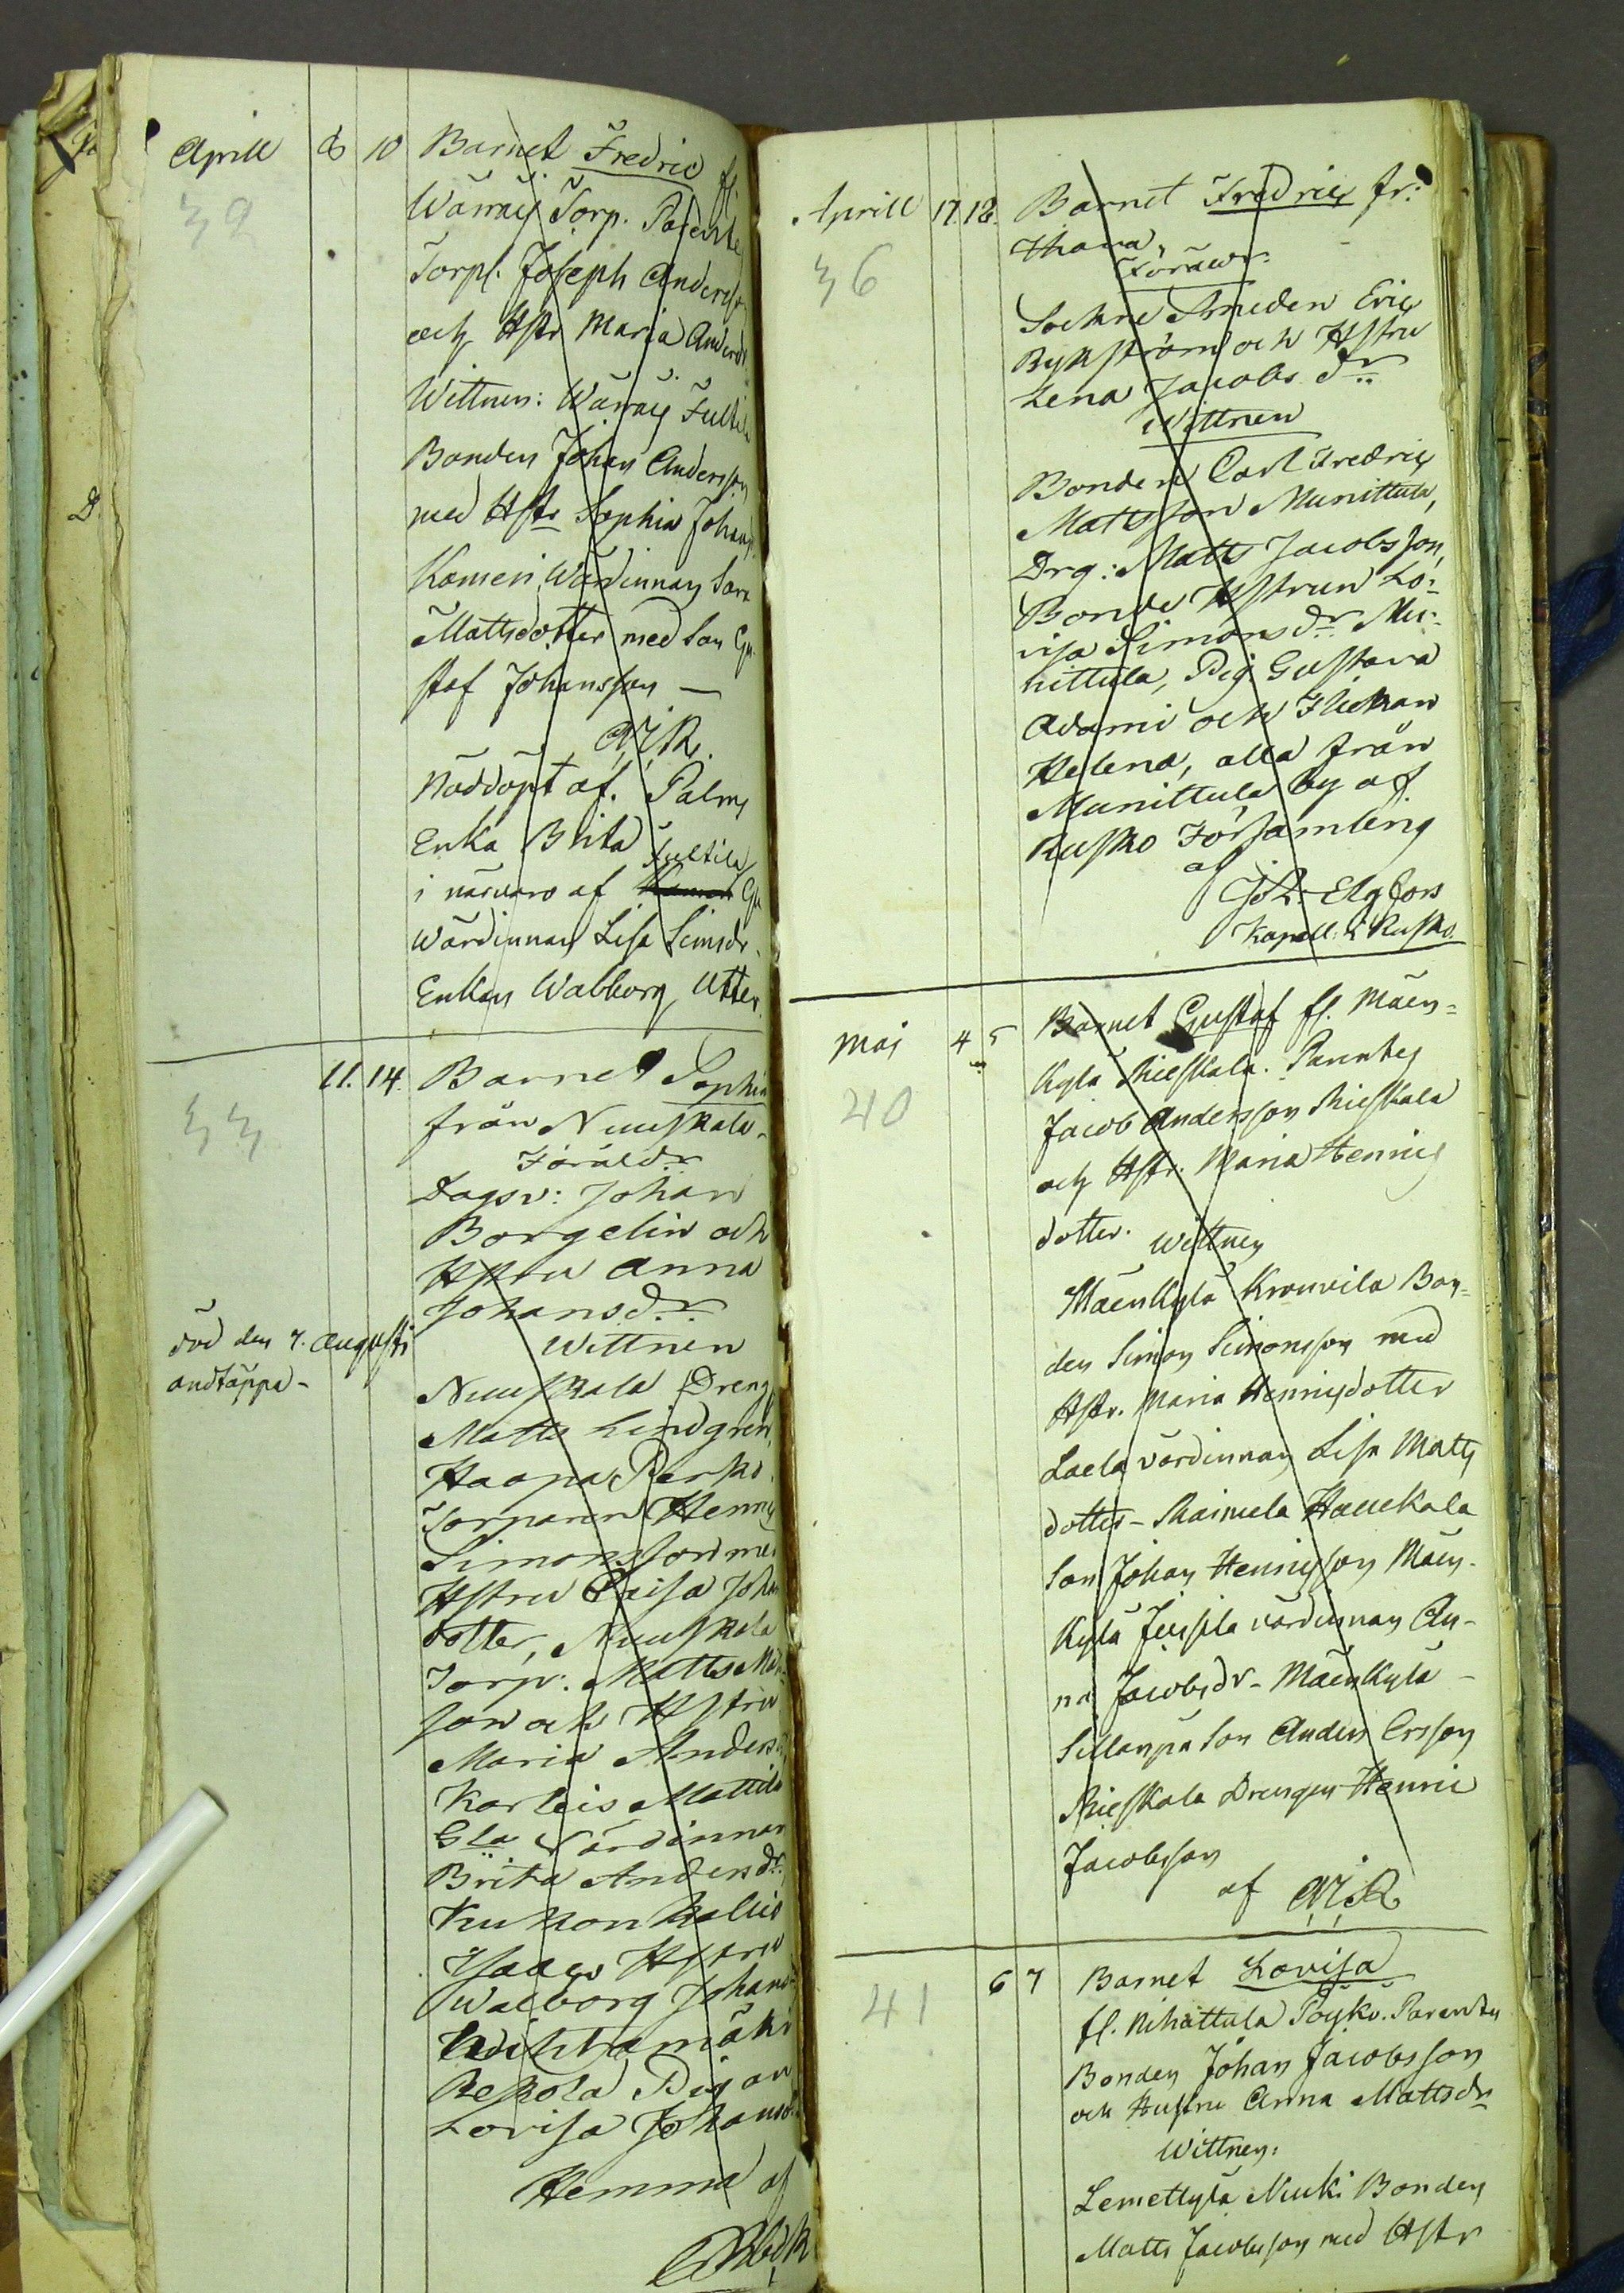 Aprill 8 10 Barnet Fredric fl.
32
Wäräis Torp. Parentes
Torpl. Joseph Andersson
och Hstr Maria Andersdr
Wittnen: Wäräis Fultila
Bonden Johan Andersson
med Hstr Sophia Johansdr
Komeri Wärdinnan Sara
Mattsdotter med Son Gu-
staf Johansson —
Nöddöpt af. Palmg
Enka Brita
Fultila
i närwaro af
Wärdinnan Lisa Simsdr.
Enkan Walborg Utter
11. 14. Barnet Sophia
33
från Nuuskala
Föräldr
Dagsv: Johan
Borgelin och
Hstru Anna
Johansdr
död den 7. Augusti
andtäppa -
Wittnen
Nuuskala Dreng
Matts Lindgren,
Haapa Perko
Torparen Henric
Simonsson med
Hstru Caisa Johans
dotter, Nuuskala
Torp: Matts Mats
son och Hstru
Maria Andersdr
Karleis Mattila
Gla Värdinnan
Brita Andersdr,
Kukonkallio
Isaacs Hstru
Walborg Johansdr
Wihtamäki
Rekola Pigan
Lovisa Johansdr
Hemma af
Aprill 17. 18. Barnet Fredric fr:
36
Föräldr
Sockne Smeden Eric
Rykström och Hstru
Lena Jacobs dr
Wittnen
Bonden Carl Fredric
Mattsson Munittula,
Drg: Matts Jacobsson,
Bonde Hstrun Lo-
visa Simonsdr Mu-
nittula, Pig. Gustava
Adami och Flickan
Helena, alla från
Munittula by af
Rusko Församling
af
Joh. Elgfors
Kapell: i Rusko.
Maj 4 5 Barnet Gustaf fl. Mäen-
40
kylä Mieskala. Parentes
Jacob Andersson Mieskala
och Hstr. Maria Henrics
dotter. Wittnen
Mäenkylä Krouvila Bon-
den Simon Simonsson med
Hstr. Maria Henricsdotter
Laela värdinnan Lisa Matts
dotter - Raimela Haukala
Son Johan Henricsson Mäen-
kylä Juisila värdinnan An-
na Jacobsdr - Mäenkylä -
Sillanpä Son Anders Ersson
Mieskala Drengen Henric
Jacobsson
af
6 7 Barnet Lovisa
41
fl. Nihattula Poyko. Parentes
Bonden Johan Jacobsson
och Hustru Anna Mattsdr
Wittnen:
Lemetkylä Nuuki Bonden
Matts Jacobsson med Hstr